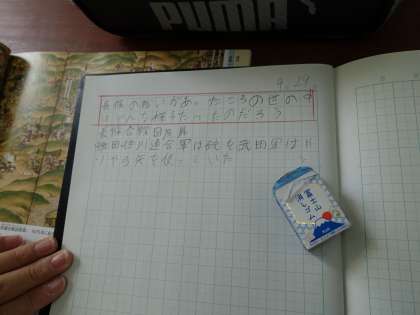 PUMA
9.29
長篠の戦いがあったころの世の中
はどんな様子だったのだろう
長篠合戦図屏風
織田徳川連合軍は砲を武田軍は
やり や矢を使っていた
富士山
消しゴム